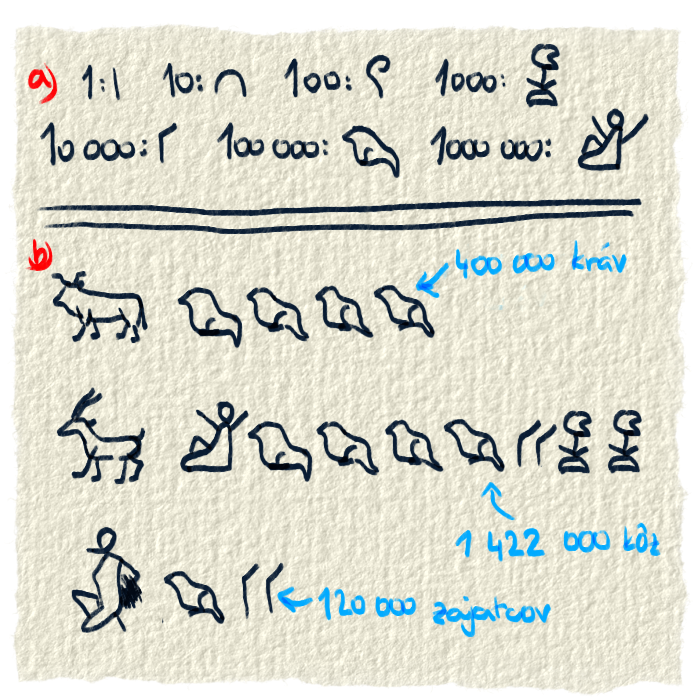 a) 1: 10: 100: 1000:
10 000: 100 000: 1000 000:
b)
400 000 kráv
1 422 000 kôz
120 000 zajatcov